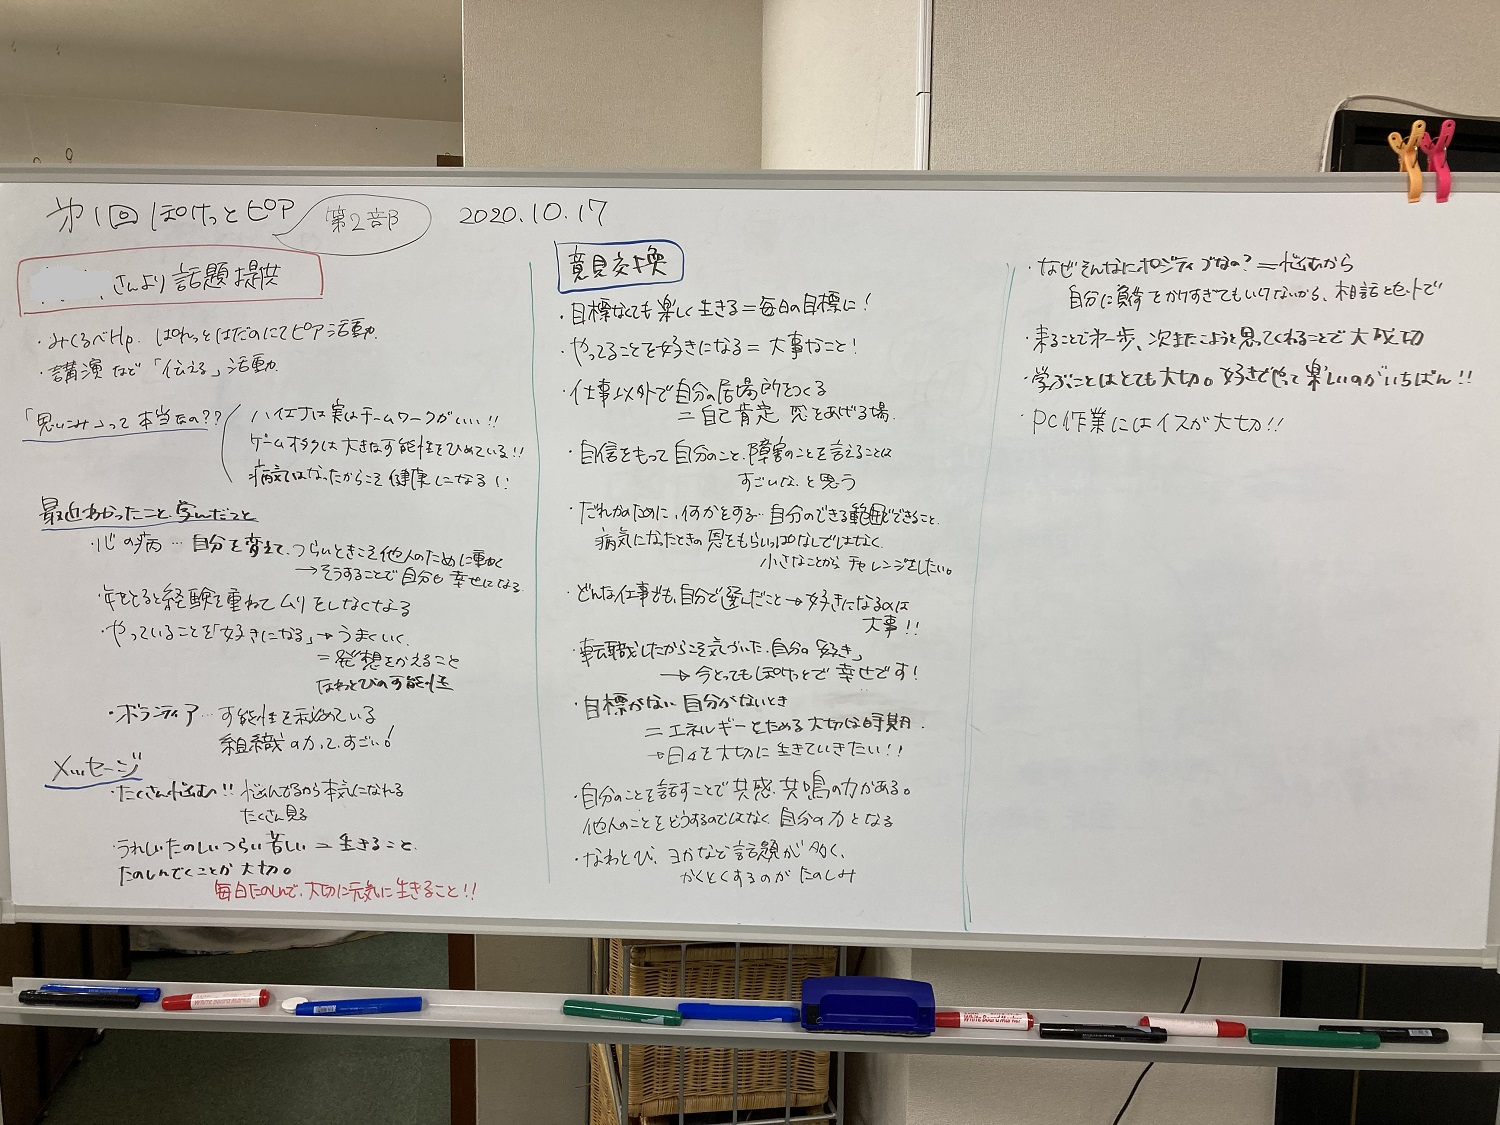 第1回 ぽけっとピア 第2部 2020.10.17
さんより話題提供
・みくるべHp. ぱれっとはだのにてピア活動.
・講演など「伝える」活動.
「思いこみ」って本当なの??
ハイエナは実はチームワークがいい!!
ゲームオタクは大きな可能性をひめている!!
病気になったからこそ健康になる!!
最近わかったこと、学んだこと
・心の病…自分を変えて、つらいときこそ他人のために動く
→そうすることで自分も幸せになる
・年をとると経験を重ねてムリをしなくなる
・やっていることを「好きになる」→うまくいく.
=発想をかえること
なわとびの可能性
・ボランティア…可能性を秘めている
組織の力って、すごい!
メッセージ
・たくさん悩む!! 悩んでるから本気になれる
たくさん見る
・うれしいたのしいつらい苦しい=生きること.
たのしんでくことが大切。
毎日たのしんで、大切に元気に生きること!!
意見交換
・目標なくても楽しく生きる=毎日の目標に!
・やってることを好きになる=大事なこと!
・仕事以外で自分の居場所をつくる
=自己肯定 恩をあげる場.
・自信をもって自分のこと、障害のことを言えることは
すごいな、と思う
・だれかのために、何かをする…自分のできる範囲でできること.
病気になったときの恩をもらいっぱなしではなく.
小さなことからチャレンジをしたい。
・どんな仕事でも、自分で選んだこと→好きになるのは
大事!!
・転職したからこそ気づいた、自分の「好き」
→今とってもぽけっとで幸せです!
・目標がない自分がないとき
=エネルギーをためる大切な時期.
→日々を大切に生きていきたい!!
・自分のことを話すことで共感、共鳴の力がある。
他人のことをどうするのではなく自分の力となる
・なわとび、ヨガなど話題が多く、
かくとくするのがたのしみ
・なぜそんなにポジティブなの?=悩むから
自分に負荷をかけすぎてもいけないから、相談とセットで
・来ることで第一歩、次またこようと思ってくれることで大成功
・学ぶことはとても大切。好きでやって楽しいのがいちばん!!
・PC作業にはイスが大切!!
White Board Marker
White Board Marker